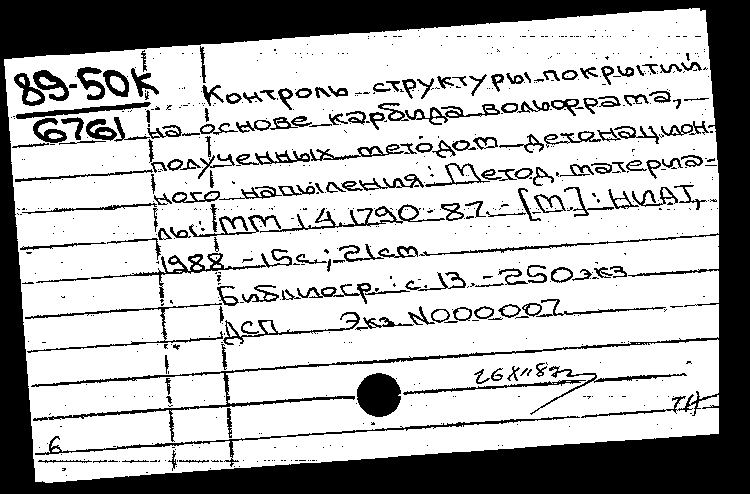 89-50К Контроль структуры покрытий
6761 на основе карбида вольфрама,
полученных методом детонацион-
ного напыления: Метод. материа-
лы: ММ 1.4.1790-87. - [М.]: НИАТ,
1988. - 15с.; 21см.
Библиогр.: с. 13. - 250экз
ДСП Экз. N000007.
ТА
6